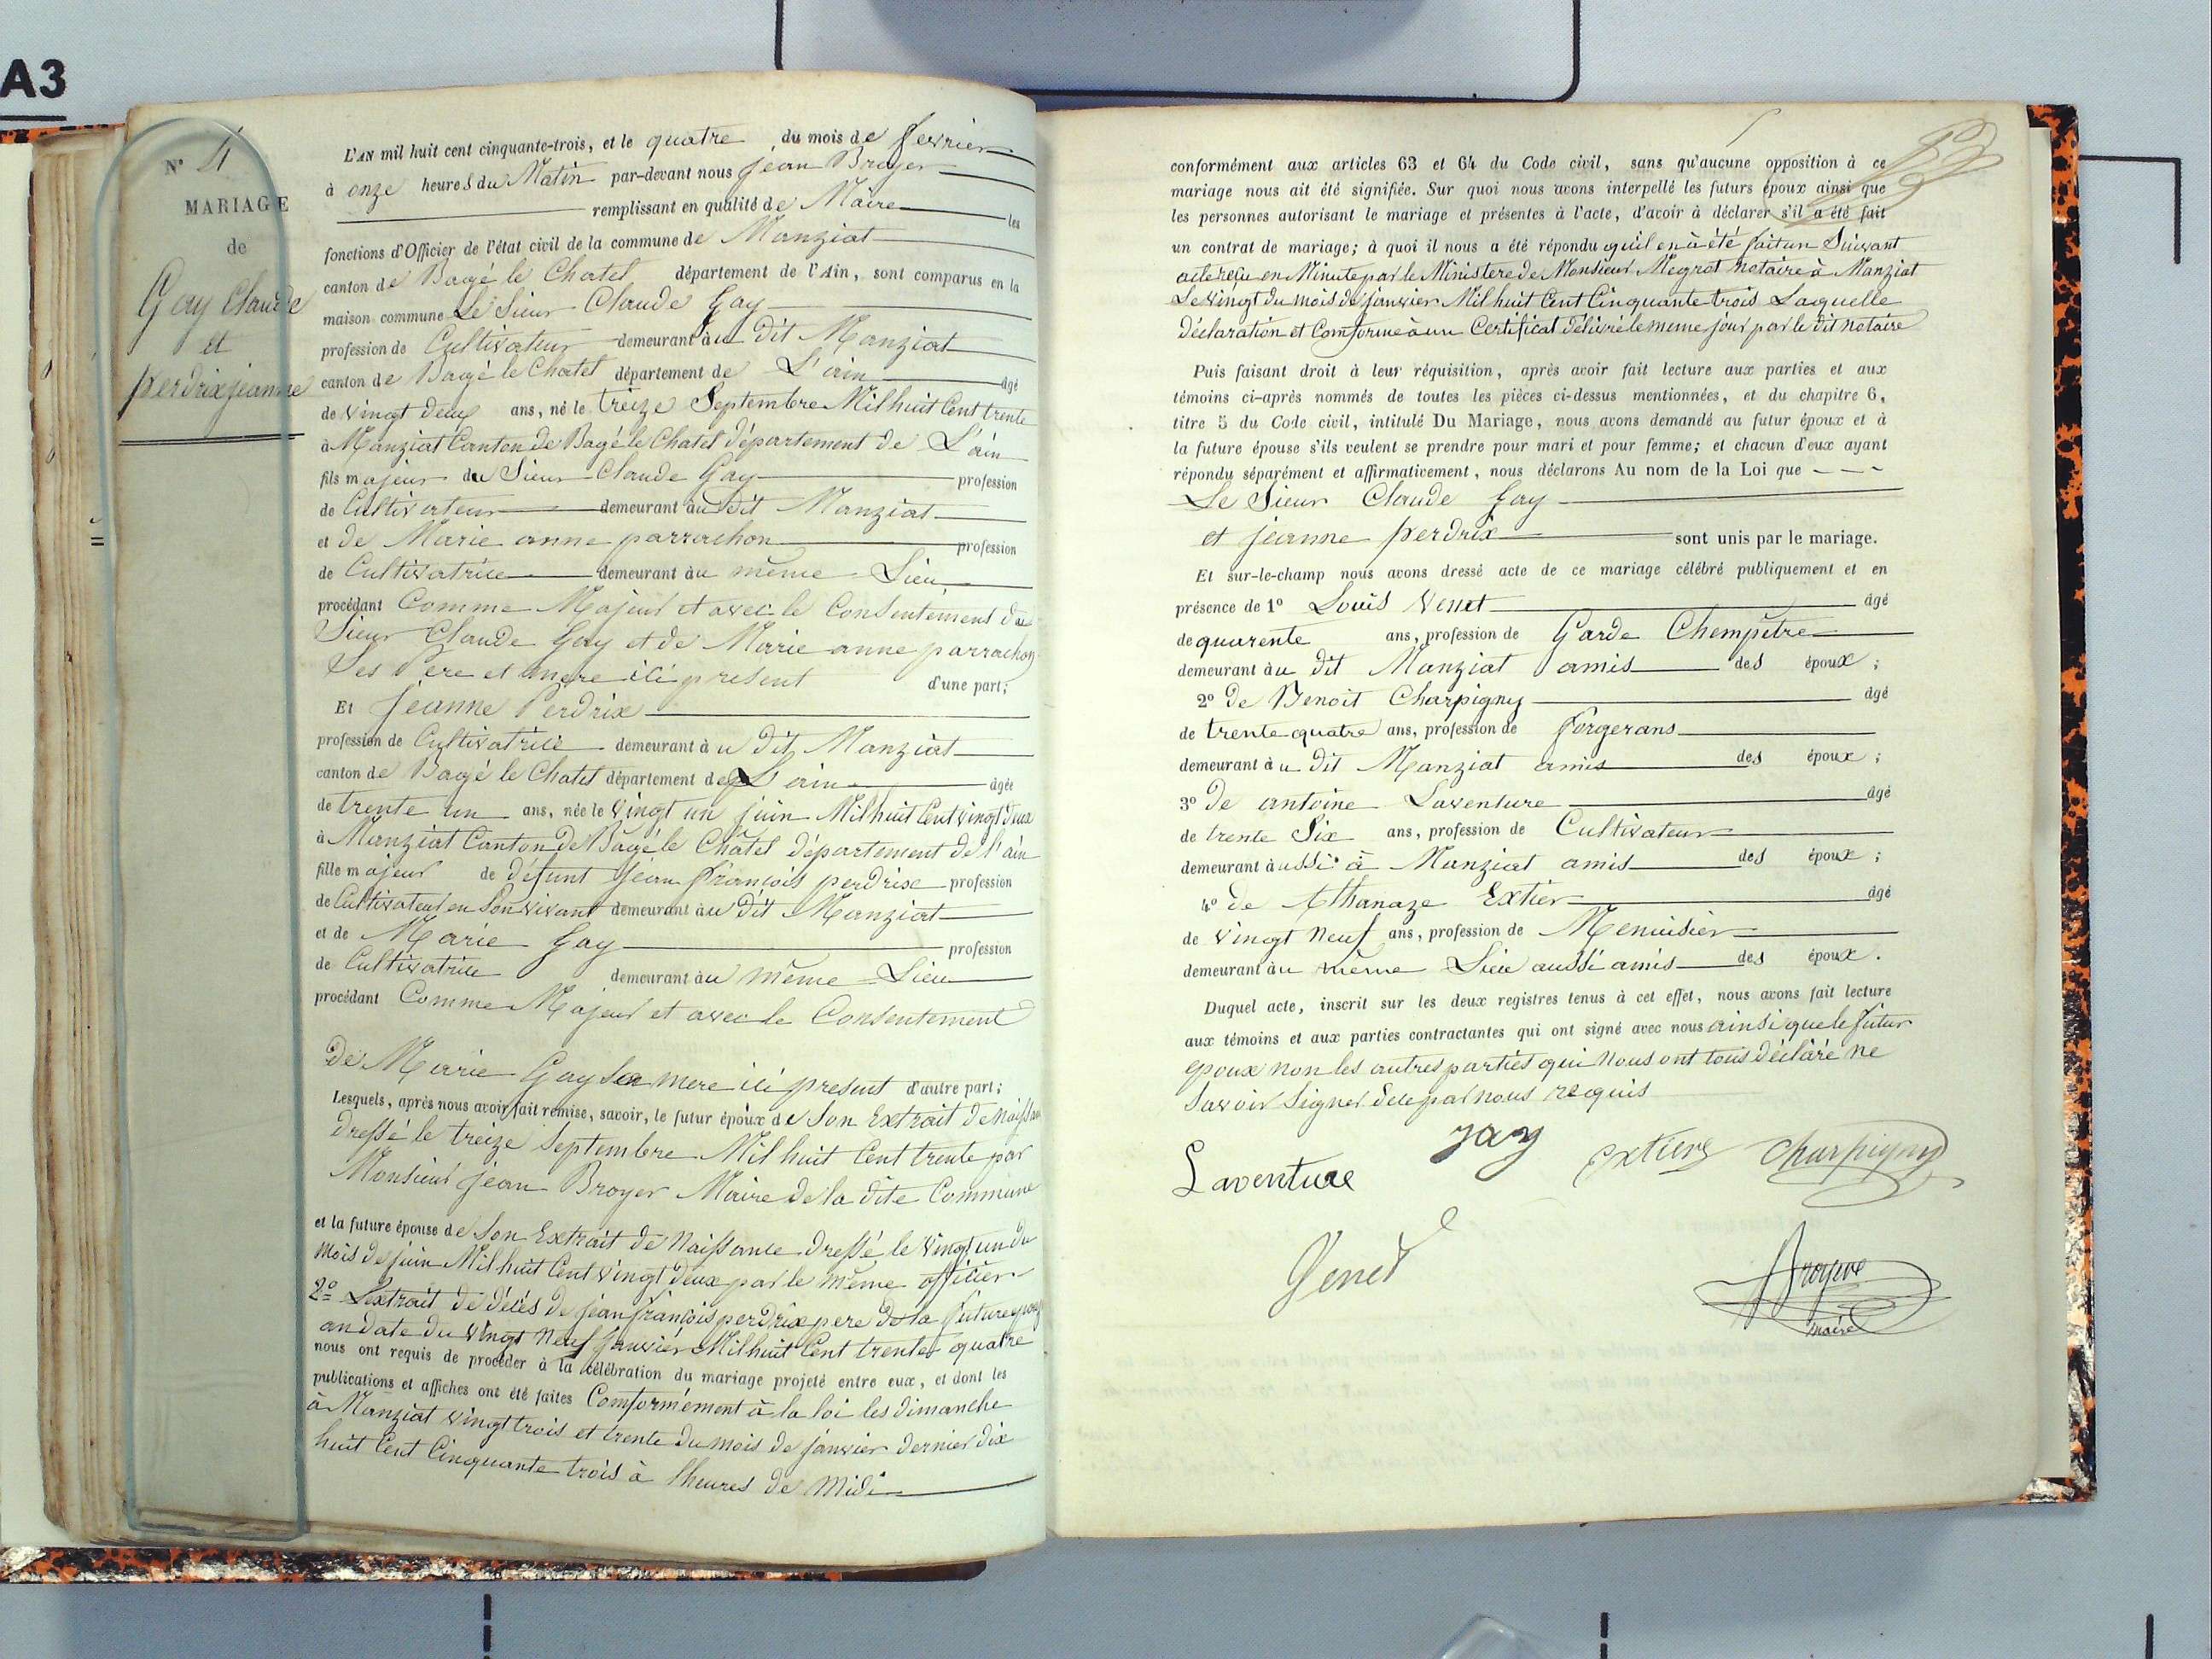 A3
N° 4
MARIAGE
de
Gay Claude
et
perdrix jeanne
L'AN mil huit cent cinquante-trois, et le quatre du mois de fevrier
à onze heures du Matin par-devant nous jean Broyer
remplissant en qualité de Maire les
fonctions d'Officier de l'état civil de la commune de Manziat
canton de Bagé le Chatel département de l'Ain, sont comparus en la
maison commune Le Sieur Claude Gay
profession de Cultivateur demeurant au dit Manziat
canton de Bagé le Chatel département de L'ain âgé
de vingt deux ans, né le treize Septembre Mil huit Cent trente
à Manziat Canton de Bagé le Chatel département de L'ain
fils majeur du Sieur Claude Gay profession
de Cultivateur demeurant au dit Manziat
et de Marie anne parrachon profession
de Cultivatrice demeurant au même Lieu
procédant Comme Majeur et avec le Consentement du
Sieur Claude Gay et de Marie anne parrachon
Ses Pere et mere ici present d'une part;
Et Jeanne Perdrix
profession de Cultivatrice demeurant au dit Manziat
canton de Bagé le Chatel département de L'ain âgée
de trente un ans, née le vingt un juin Mil huit Cent vingt deux
à Manziat Canton de Bagé le Châtel département de l'ain
fille majeur de défunt Jean François perdrix profession
de Cultivateur en Son vivant demeurant au dit Manziat
et de Marie Gay profession
de Cultivatrice demeurant au même Lieu
procédant Comme Majeur et avec le Consentement
De Marie Gay Sa mere ici present d'autre part;
Lesquels, après nous avoir fait remise, savoir, le futur époux de Son Extrait de Naissance
dressé le treize Septembre Mil huit Cent trente par
Monsieur jean Broyer Maire de la dite Commune
et la future épouse de Son Extrait de Naissance dressé le vingt un du
mois de juin Mil huit Cent vingt deux par le même officier
2° Lextrait de décés de jean françois perdrix pere de la future
an date du vingt Neuf janvier Mil huit Cent trente quatre
nous ont requis de procéder à la célébration du mariage projeté entre eux, et dont les
publications et affiches ont été faites Comformément à la loi les dimanche
à Manziat vingt trois et trente du mois de janvier dernier dix
huit Cent Cinquante trois à lheures de Midi
conformément aux articles 63 et 64 du Code civil, sans qu'aucune opposition à ce
mariage nous ait été signifiée. Sur quoi nous avons interpellé les futurs époux ainsi que
les personnes autorisant le mariage et présentes à l'acte, d'avoir à déclarer s'il a été fait
un contrat de mariage; à quoi il nous a été répondu qu'il en à été fait un Suivant
acte reçu en Minute par le Ministere de Monsieur Megrot notaire à Manziat
Le vingt du mois de janvier Mil huit Cent Cinquante trois Laquelle
déclaration et Comforme à un Certificat délivré le meme jour par le dit notaire
Puis faisant droit à leur réquisition, après avoir fait lecture aux parties et aux
témoins ci-après nommés de toutes les pièces ci-dessus mentionnées, et du chapitre 6,
titre 5 du Code civil, intitulé Du Mariage, nous avons demandé au futur époux et à
la future épouse s'ils veulent se prendre pour mari et pour femme; et chacun d'eux ayant
répondu séparément et affirmativement, nous déclarons Au nom de la Loi que
Le Sieur Claude Gay
et jeanne perdrix sont unis par le mariage.
Et sur-le-champ nous avons dressé acte de ce mariage célébré publiquement et en
présence de 1° Louis Venet âgé
de quarente ans, profession de Garde Chempêtre
demeurant au dit Manziat amis des époux;
2° de Benoit Charpigny âgé
de trente quatre ans, profession de forgerans
demeurant au dit Manziat amis des époux;
3° de antoine Laventure âgé
de trente Six ans, profession de Cultivateur
demeurant aussi à Manziat amis des époux;
4° de Athanaze Extier âgé
de vingt Neuf ans, profession de Menuisier
demeurant au même Lieu aussi amis des époux.
Duquel acte, inscrit sur les deux registres tenus à cet effet, nous avons fait lecture
aux témoins et aux parties contractantes qui ont signé avec nous ainsi que le futur
epoux non les autres parties qui Nous ont tous déclaré ne
Savoir Signer de par nous requis
Laventure gay Extier Charpigny
Venet
Broyer
maire